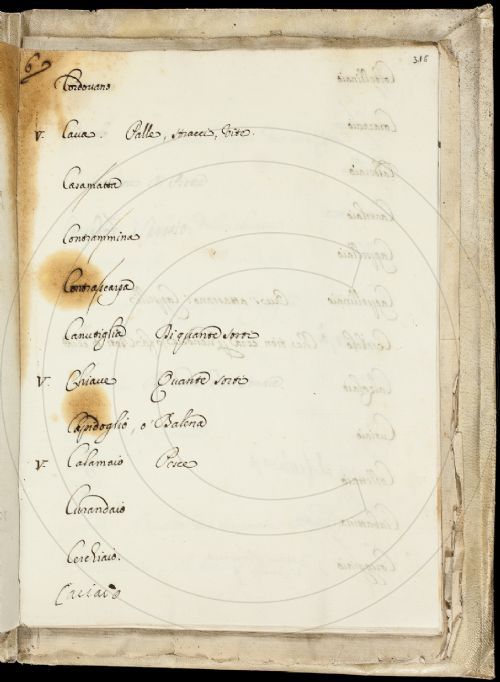 6
316
Cordovano
V. Cava. Palle, stracci, Vite.
Casamatta
Contrammina
Contrascarpa
Canutiglia Di quante sorti
V. Chiave Quante sorti
Capidoglio, o Balena
V. Calamaio Pesce
Curandaio
Cerchiaio.
Caciaio